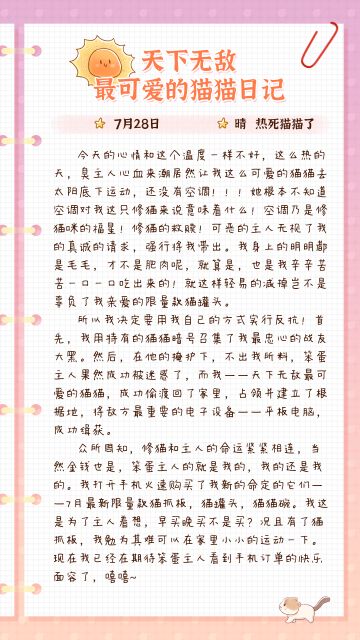 天下无敌
最可爱的猫猫日记
7月28日 晴 热死猫猫了
今天的心情和这个温度一样不好，这么热的
天，臭主人心血来潮居然让我这么可爱的猫猫去
太阳底下运动，还没有空调！！！她根本不知道
空调对我这只修猫来说意味着什么！空调乃是修
猫咪的福星！修猫的救赎！可恶的主人无视了我
的真诚的请求，强行将我带出。我身上的明明都
是毛毛，才不是肥肉呢，就算是，也是我辛辛苦
苦一口一口吃出来的！就这样轻易的减掉岂不是
辜负了我亲爱的限量款猫罐头。
所以我决定要用我自己的方式实行反抗！首
先，我用特有的猫猫暗号召集了我最忠心的战友
大黑。然后，在他的掩护下，不出我所料，笨蛋
主人果然成功被迷惑了，而我——天下无敌最可
爱的猫猫，成功偷渡回了家里，占领并建立了根
据地，将敌方最重要的电子设备——平板电脑，
成功缉获。
众所周知，修猫和主人的命运紧紧相连，当
然金钱也是，笨蛋主人的就是我的，我的还是我
的。我打开手机火速购买了我新的命定的它们—
—7月最新限量款猫抓板，猫罐头，猫猫碗。我这
是为了主人着想，早买晚买不是买？况且有了猫
抓板，我勉为其难可以在家里小小的运动一下。
现在我已经在期待笨蛋主人看到手机订单的快乐
面容了，嘻嘻~